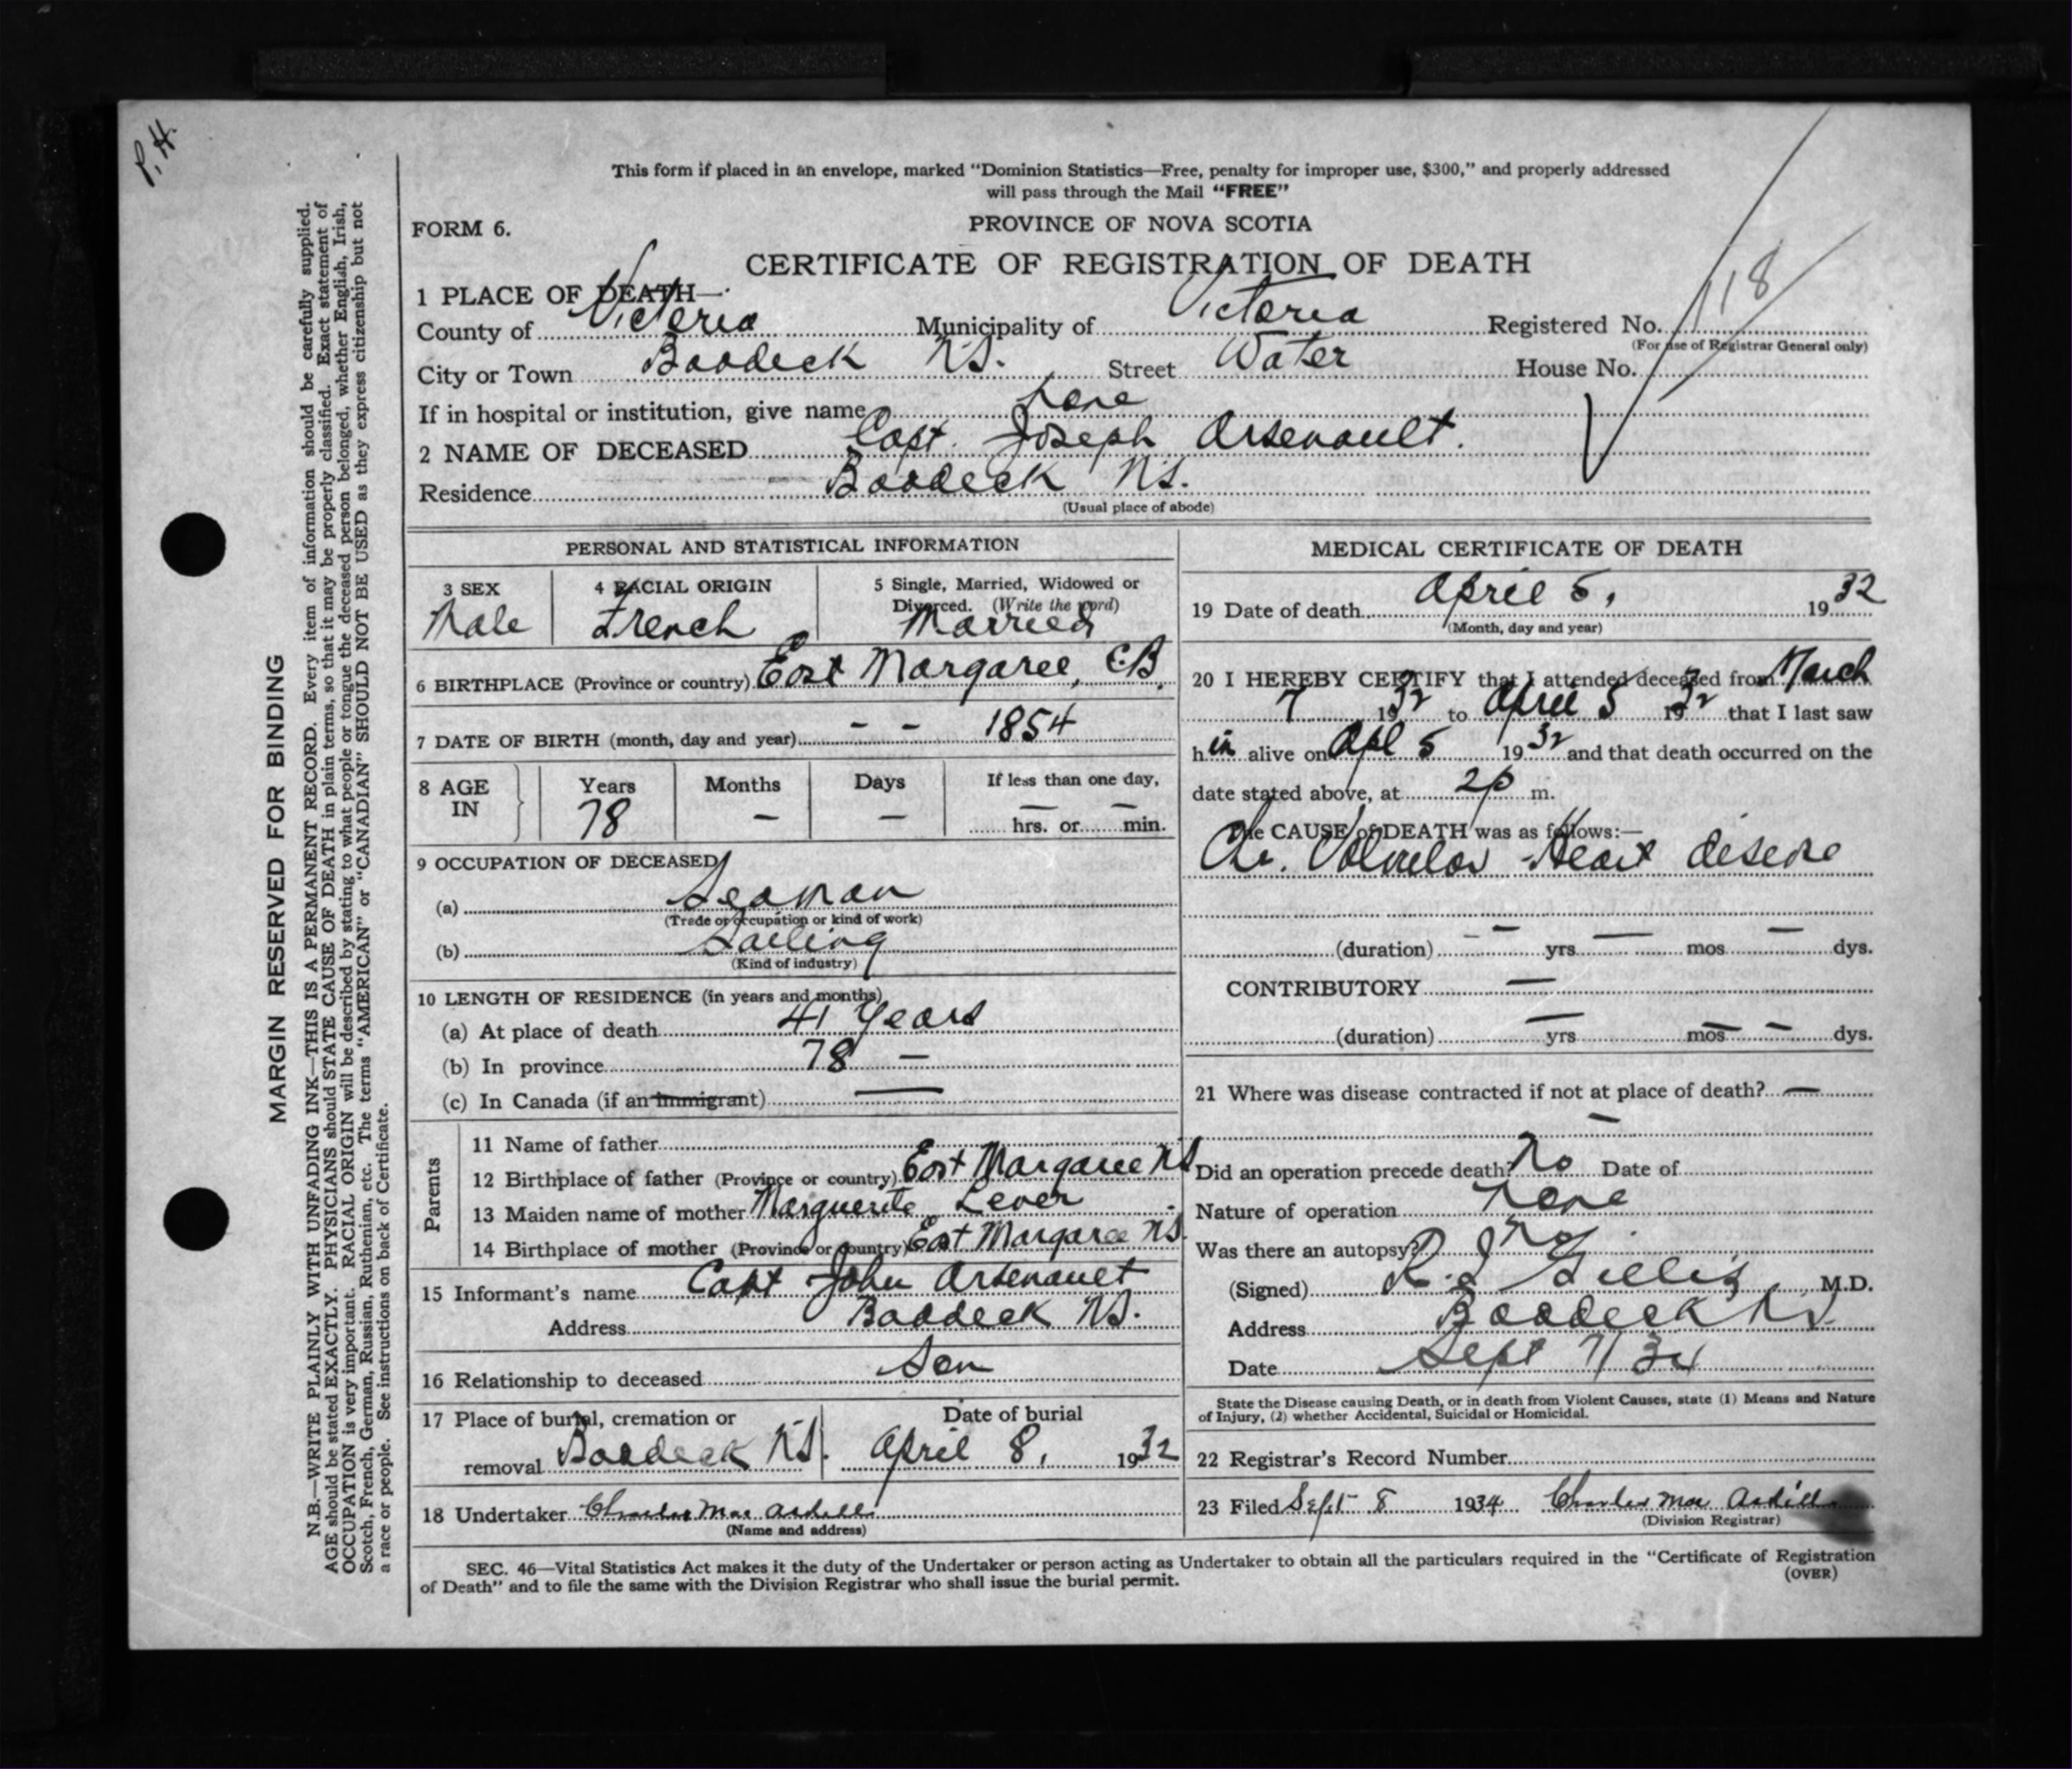 P.H.
This form if placed in an envelope, marked "Dominion Statistics—Free, penalty for improper use, $300," and properly addressed
will pass through the Mail "FREE"
FORM 6.
PROVINCE OF NOVA SCOTIA
CERTIFICATE OF REGISTRATION OF DEATH
1 PLACE OF DEATH—
County of Victoria Municipality of Victoria Registered No. 118
(For use of Registrar General only)
City or Town Baddeck N.S. Street Water House No.
If in hospital or institution, give name none
2 NAME OF DECEASED Capt. Joseph Arsenault.
Residence Baddeck N.S.
(Usual place of abode)
PERSONAL AND STATISTICAL INFORMATION
3 SEX Male
4 RACIAL ORIGIN French
5 Single, Married, Widowed or
Divorced. (Write the word)
Married
6 BIRTHPLACE (Province or country) East Margaree, C.B.
7 DATE OF BIRTH (month, day and year) – – 1854
8 AGE IN
Years Months Days If less than one day,
78 – – – hrs. or – min.
9 OCCUPATION OF DECEASED
(a) Seaman
(Trade or occupation or kind of work)
(b) Sailing
(Kind of industry)
10 LENGTH OF RESIDENCE (in years and months)
(a) At place of death 41 years
(b) In province 78 –
(c) In Canada (if an immigrant) —
Parents
11 Name of father
12 Birthplace of father (Province or country) East Margaree N.S
13 Maiden name of mother Marguerite Lever
14 Birthplace of mother (Province or country) East Margaree N.S.
15 Informant's name Capt John Arsenault
Address Baddeck N.S.
16 Relationship to deceased Son
17 Place of burial, cremation or Date of burial
removal Baddeck N.S. April 8, 1932
18 Undertaker Charles Mac Ardill
(Name and address)
MEDICAL CERTIFICATE OF DEATH
19 Date of death April 5, 1932
(Month, day and year)
20 I HEREBY CERTIFY that I attended deceased from March
7 1932 to April 5 1932 that I last saw
him alive on Apl 5 1932 and that death occurred on the
date stated above, at 2 p m.
The CAUSE of DEATH was as follows:—
Ch. Valvular Heart disease
(duration) – yrs — mos – dys.
CONTRIBUTORY —
(duration) — yrs — mos – dys.
21 Where was disease contracted if not at place of death? —
–
Did an operation precede death? No Date of
Nature of operation none
Was there an autopsy? no
(Signed) Gillis, M.D.
Address Baddeck N.S.
Date Sept 7/34
State the Disease causing Death, or in death from Violent Causes, state (1) Means and Nature
of Injury, (2) whether Accidental, Suicidal or Homicidal.
22 Registrar's Record Number
23 Filed Sept 8 1934 Charles Mac Ardill
(Division Registrar)
SEC. 46—Vital Statistics Act makes it the duty of the Undertaker or person acting as Undertaker to obtain all the particulars required in the "Certificate of Registration
of Death" and to file the same with the Division Registrar who shall issue the burial permit.
(OVER)
MARGIN RESERVED FOR BINDING
N.B.—WRITE PLAINLY WITH UNFADING INK—THIS IS A PERMANENT RECORD. Every item of information should be carefully supplied.
AGE should be stated EXACTLY. PHYSICIANS should STATE CAUSE OF DEATH in plain terms, so that it may be properly classified. Exact statement of
OCCUPATION is very important. RACIAL ORIGIN will be described by stating to what people or tongue the deceased person belonged, whether English, Irish,
Scotch, French, German, Russian, Ruthenian, etc. The terms "AMERICAN" or "CANADIAN" SHOULD NOT BE USED as they express citizenship but not
a race or people. See instructions on back of Certificate.